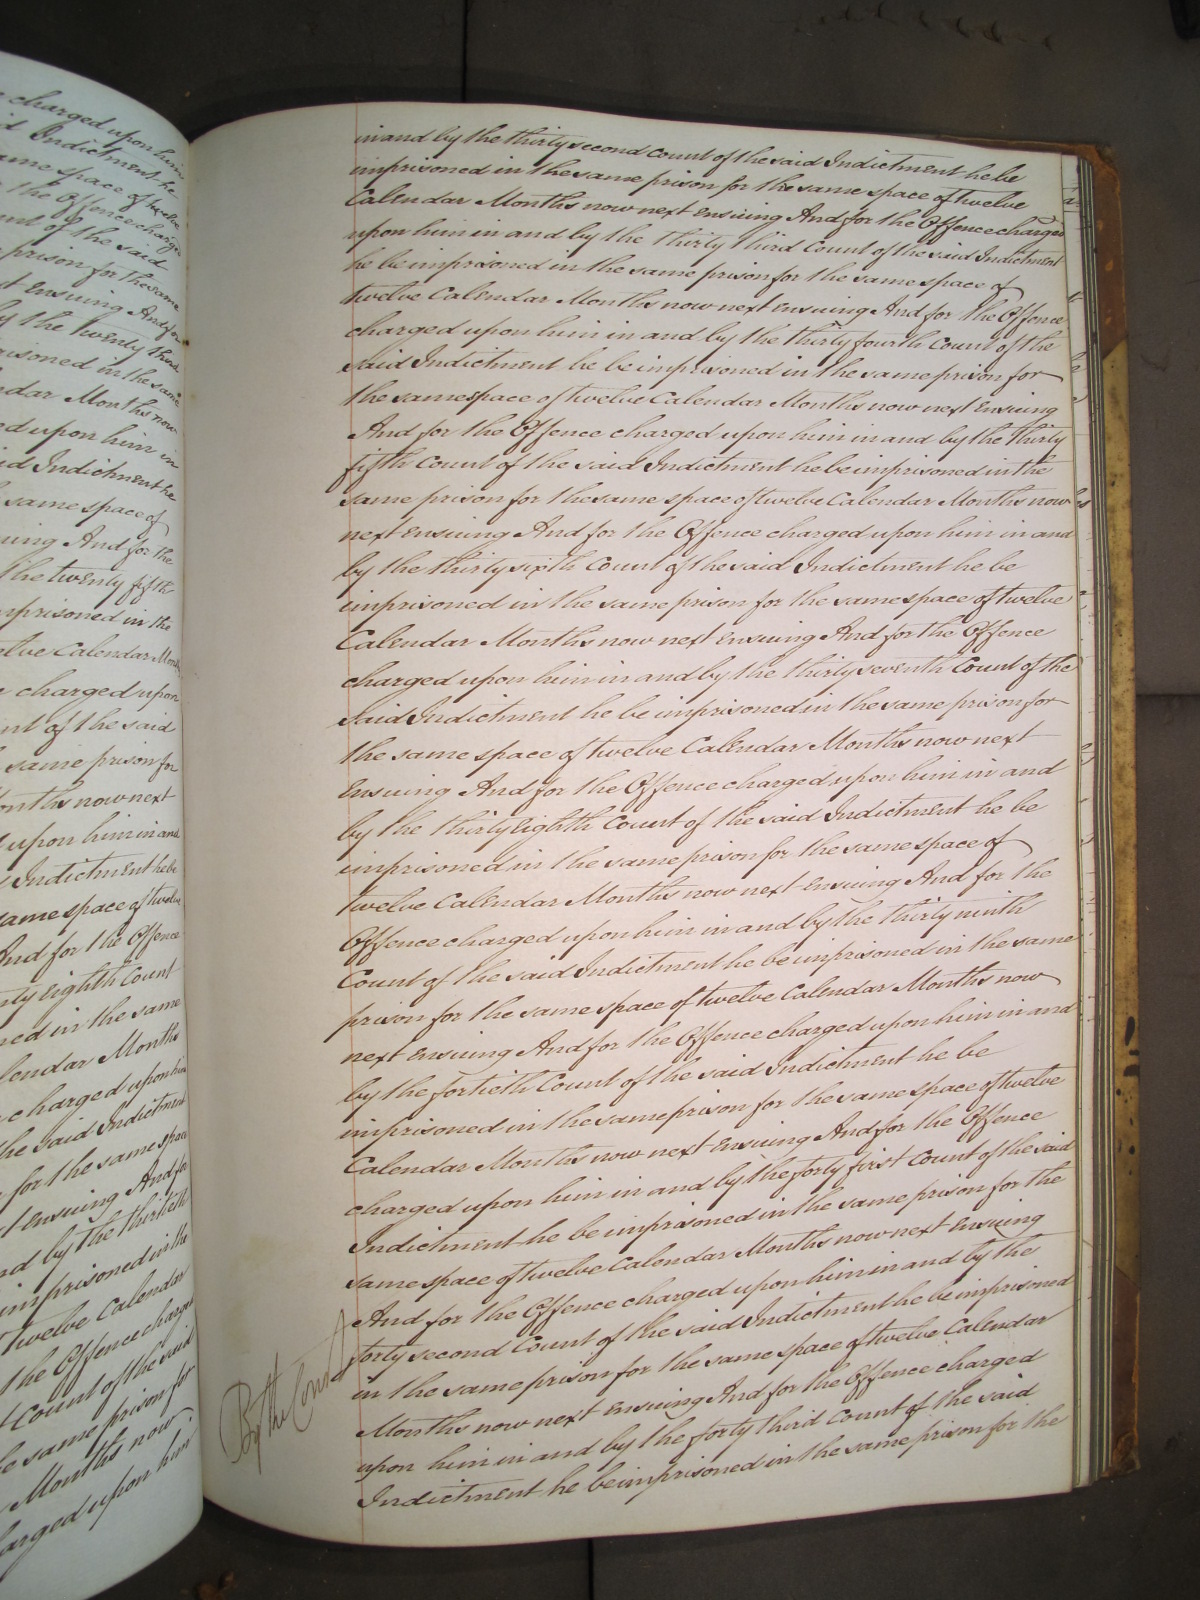 e charged upon him
d Indictment he
ame space of twelve
the Offence charge
nt of the said
prison for the same
t ensuing And for
y the twenty third
risoned in the same
dar Months now
ed upon him in
id Indictment he
same space of
uing And for the
the twenty fifth
mprisoned in the
elve Calendar Month
charged upon
nt of the said
same prison for
onths now next
upon him in and
Indictment he be
same space of twelve
And for the Offence
nty Eighth Count
ned in the same
lendar Months
charged upon him
he said Indictment
for the same space
t ensuing And for
nd by the thirtieth
imprisoned in the
twelve Calendar
the Offence charged
t Count of the said
e same prison for
Months now
arged upon him
in and by the thirty second count of the said Indictment he be
imprisoned in the same prison for the same space of twelve
Calendar Months now next ensuing And for the Offence charged
upon him in and by the thirty third Count of the said Indictment
he be imprisoned in the same prison for the same space of
twelve Calendar Months now next ensuing And for the Offence
charged upon him in and by the thirty fourth Count of the
said Indictment he be imprisoned in the same prison for
the same space of twelve Calendar Months now next ensuing
And for the Offence charged upon him in and by the thirty
fifth Count of the said Indictment he be imprisoned in the
same prison for the same space of twelve Calendar Months now
next ensuing And for the Offence charged upon him in and
by the thirty sixth Count of the said Indictment he be
imprisoned in the same prison for the same space of twelve
Calendar Months now next ensuing And for the Offence
charged upon him in and by the thirty seventh Count of the
said Indictment he be imprisoned in the same prison for
the same space of twelve Calendar Months now next
Ensuing And for the Offence charged upon him in and
by the thirty Eighth Count of the said Indictment he be
imprisoned in the same prison for the same space of
twelve Calendar Months now next ensuing And for the
Offence charged upon him in and by the thirty ninth
Count of the said Indictment he be imprisoned in the same
prison for the same space of twelve Calendar Months now
next ensuing And for the Offence charged upon him in and
by the fortieth Count of the said Indictment he be
imprisoned in the same prison for the same space of twelve
Calendar Months now next ensuing And for the Offence
charged upon him in and by the forty first Count of the said
Indictment he be imprisoned in the same prison for the
same space of twelve Calendar Months now next ensuing
And for the Offence charged upon him in and by the
forty second Count of the said Indictment he be imprisoned
in the same prison for the same space of twelve Calendar
Months now next ensuing And for the Offence charged
upon him in and by the forty third Count of the said
Indictment he be imprisoned in the same prison for the
By the Court